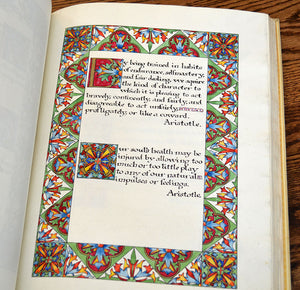 By being trained in habits
of endurance, self-mastery,
and fair dealing, we acquire
the kind of character to
which it is pleasing to act
bravely, continently, and fairly, and
disagreeable to act unfairly,
profligately, or like a coward.
Aristotle.
Our soul's health may be
injured by allowing too
much or too little play
to any of our natural
impulses or feelings.
Aristotle.